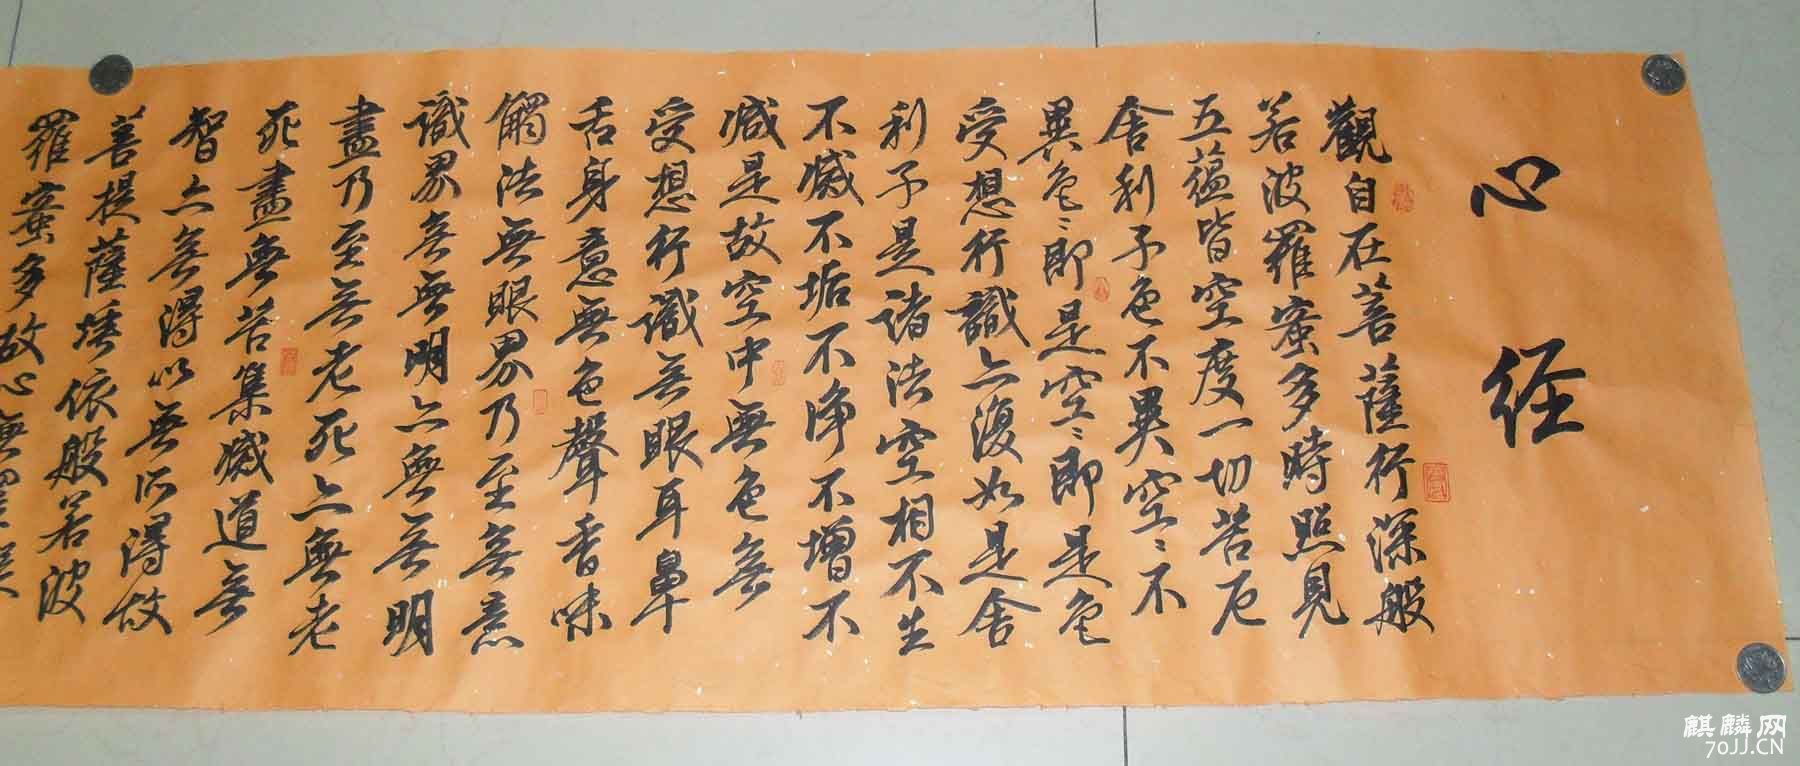 心经
觀自在菩薩行深般
若波羅蜜多時照見
五蘊皆空度一切苦厄
舍利子色不異空〻不
異色〻即是空〻即是色
受想行識亦復如是舍
利子是諸法空相不生
不滅不垢不净不增不
减是故空中無色無
受想行識無眼耳鼻
舌身意無色聲香味
觸法無眼界乃至無意
識界無無明亦無無明
盡乃至無老死亦無老
死盡無苦集滅道無
智亦無得以無所得故
菩提薩埵依般若波
羅蜜多故心無罣
麒麟网
70JJ.CN